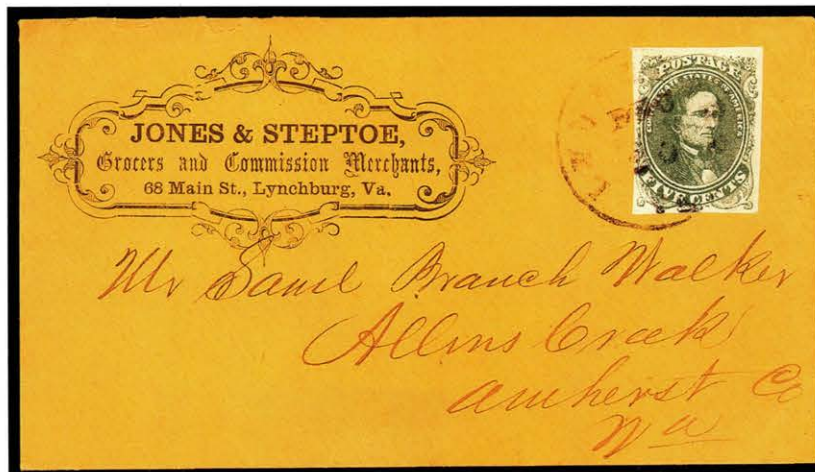 JONES & STEPTOE,
Grocers and Commission Merchants,
68 Main St., Lynchburg, Va.
POSTAGE
CONFEDERATE STATES OF AMERICA
FIVE CENTS
Mr Saml Branch Walker
Allens Creek
Amherst Co
Va